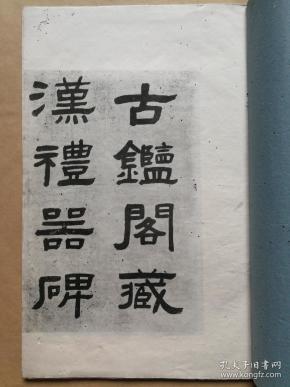 古鑑閣藏
漢禮器碑
孔夫子旧书网
kongfz.com